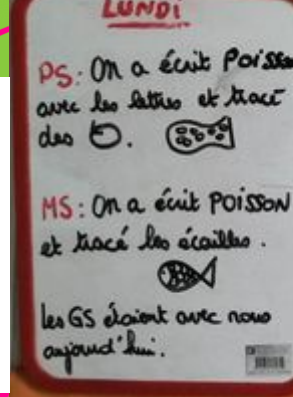 LUNDI
PS: On a écrit POISSON
avec les lettres et tracé
des .
MS: On a écrit POISSON
et tracé les écailles.
les GS étaient avec nous
aujourd'hui.